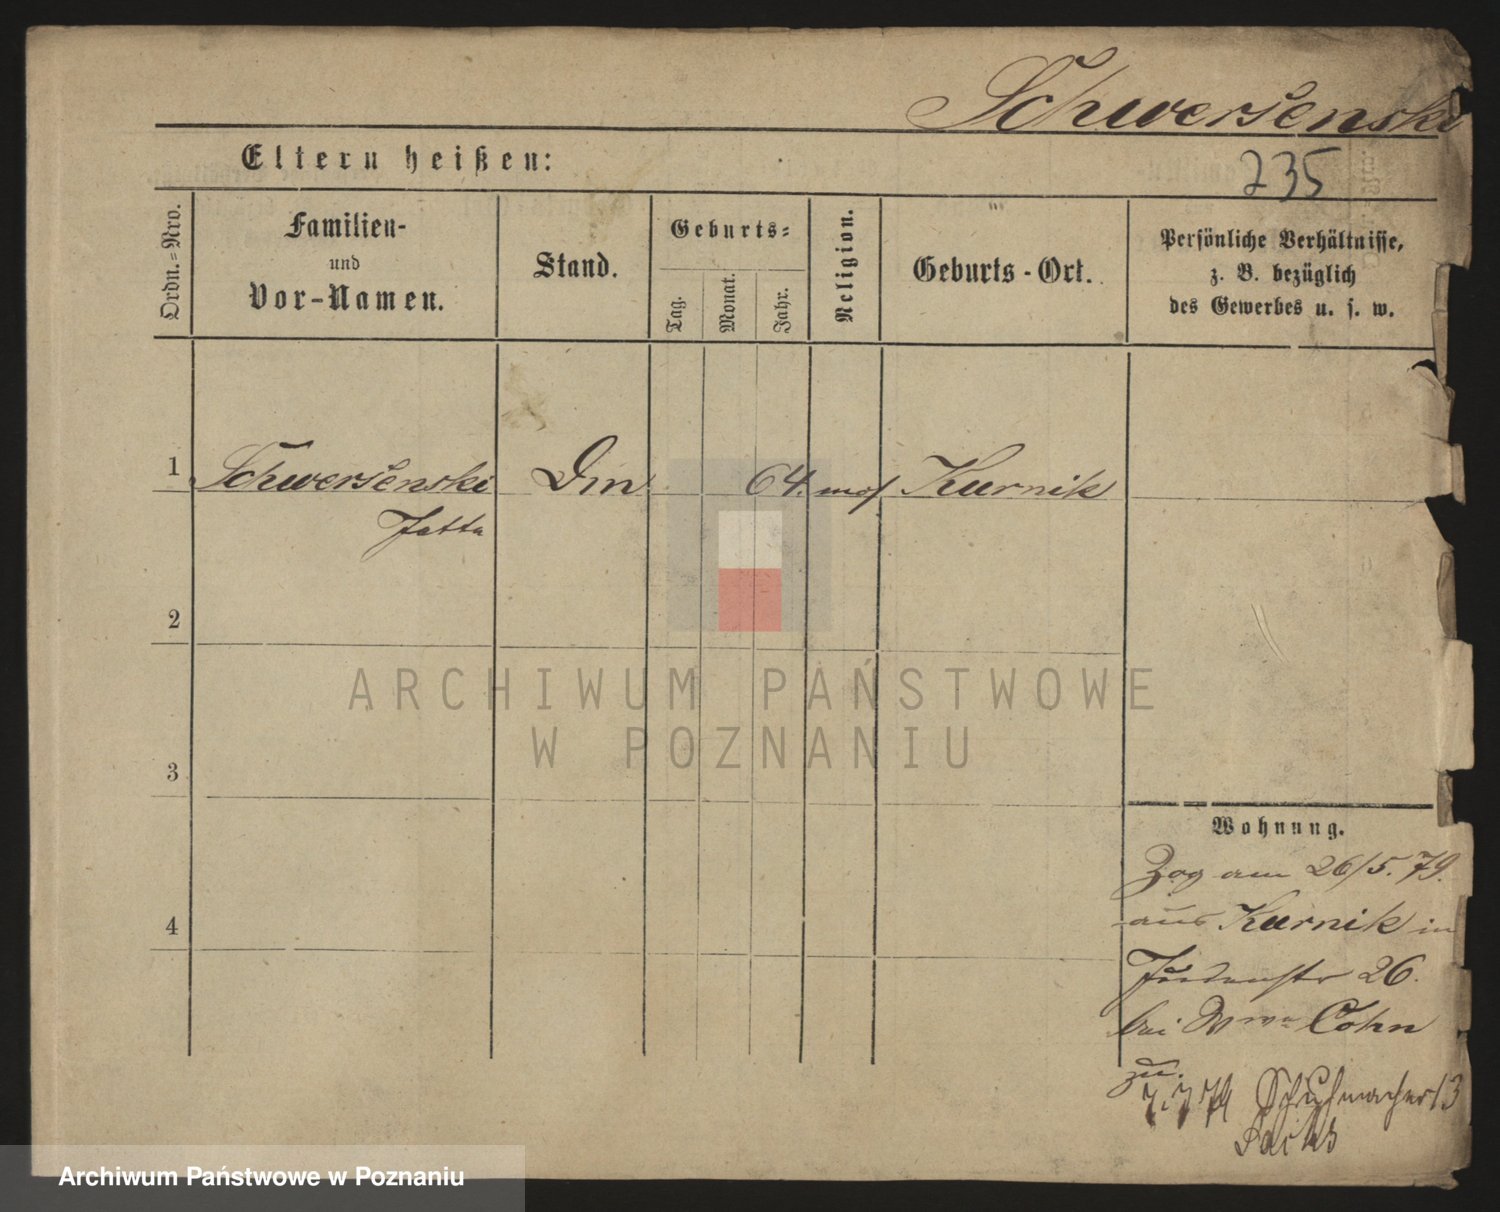 Schwersenski
Eltern heißen:
235
Ordn.-Nro.
Familien-
und
Vor-Namen.
Stand.
Geburts-
Tag.
Monat.
Jahr.
Religion.
Geburts-Ort.
Persönliche Verhältnisse,
z. B. bezüglich
des Gewerbes u. s. w.
1
Schwersenski
Jette
64. mos Kurnik
2
3
4
Wohnung.
Zog am 26/5. 79.
aus Kurnik in
Judenstr 26.
bei Wwe Cohn
zu.
7.7 79 Schuhmacherst 3
Sachs
ARCHIWUM PAŃSTWOWE
W POZNANIU
Archiwum Państwowe w Poznaniu